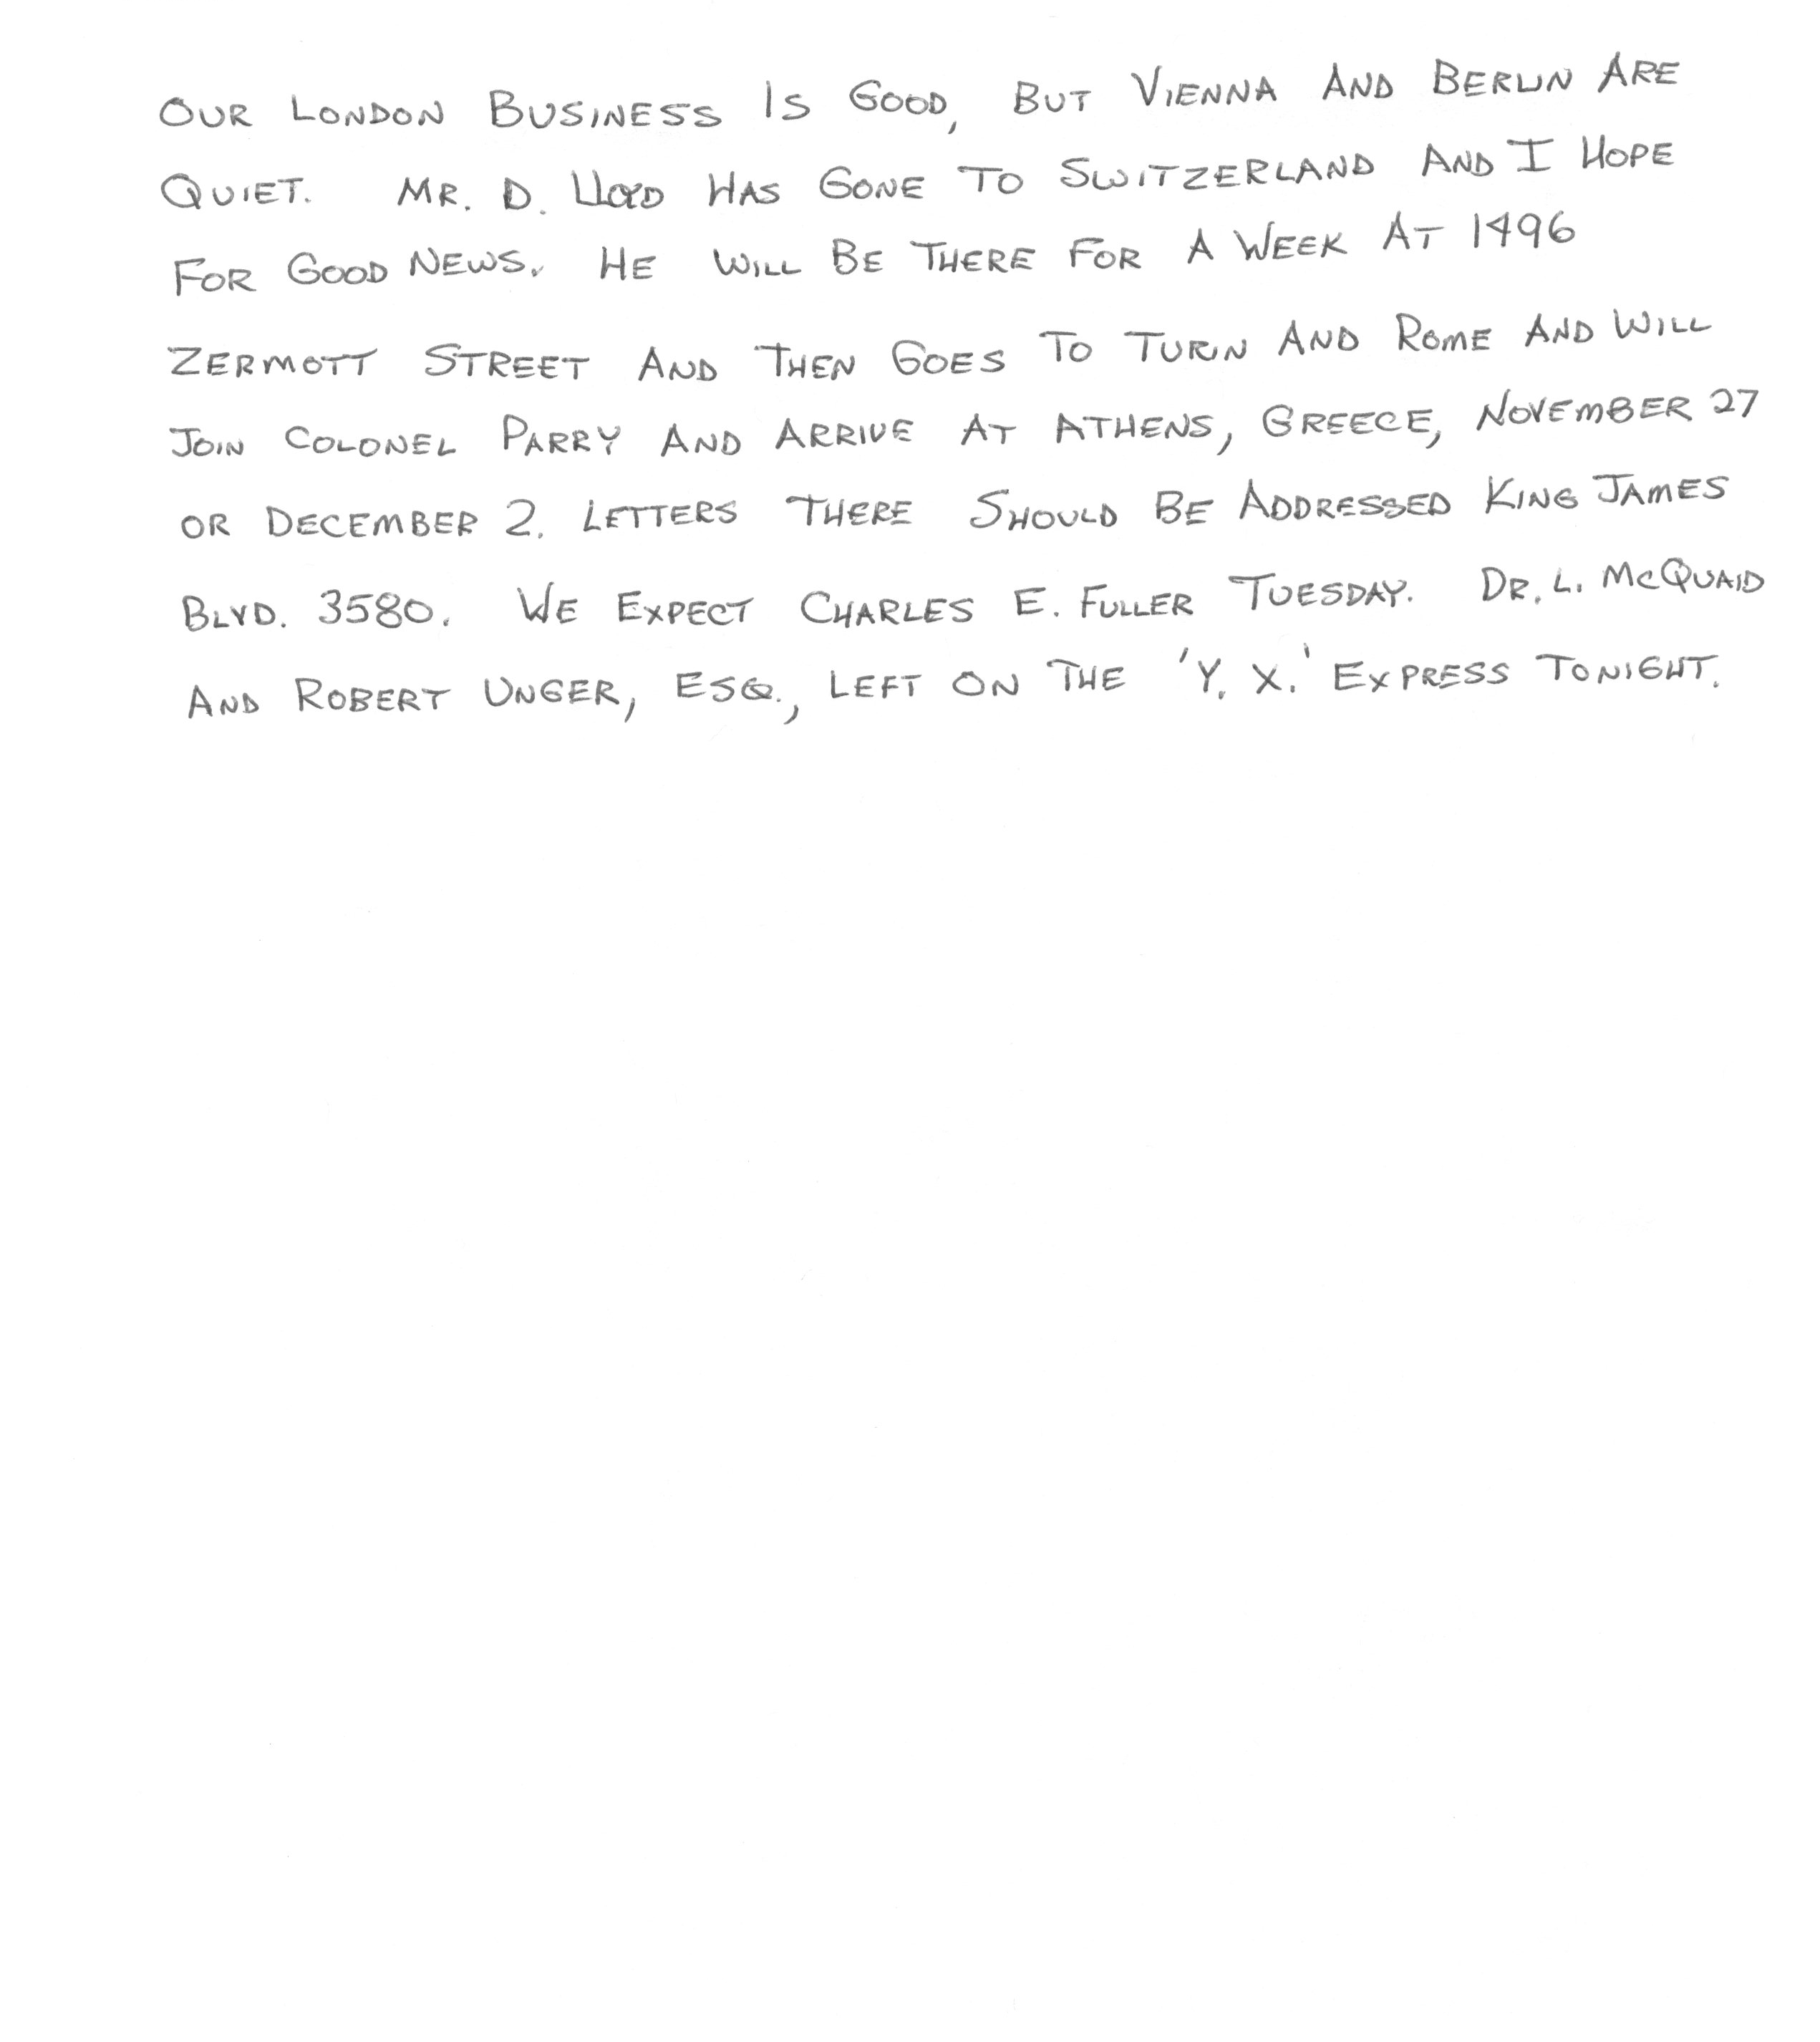 OUR LONDON BUSINESS IS GOOD, BUT VIENNA AND BERLIN ARE
QUIET. MR. D. LLOYD HAS GONE TO SWITZERLAND AND I HOPE
FOR GOOD NEWS. HE WILL BE THERE FOR A WEEK AT 1496
ZERMOTT STREET AND THEN GOES TO TURIN AND ROME AND WILL
JOIN COLONEL PARRY AND ARRIVE AT ATHENS, GREECE, NOVEMBER 27
OR DECEMBER 2. LETTERS THERE SHOULD BE ADDRESSED KING JAMES
BLVD. 3580. WE EXPECT CHARLES E. FULLER TUESDAY. DR. L. MCQUAID
AND ROBERT UNGER, ESQ., LEFT ON THE 'Y. X.' EXPRESS TONIGHT.